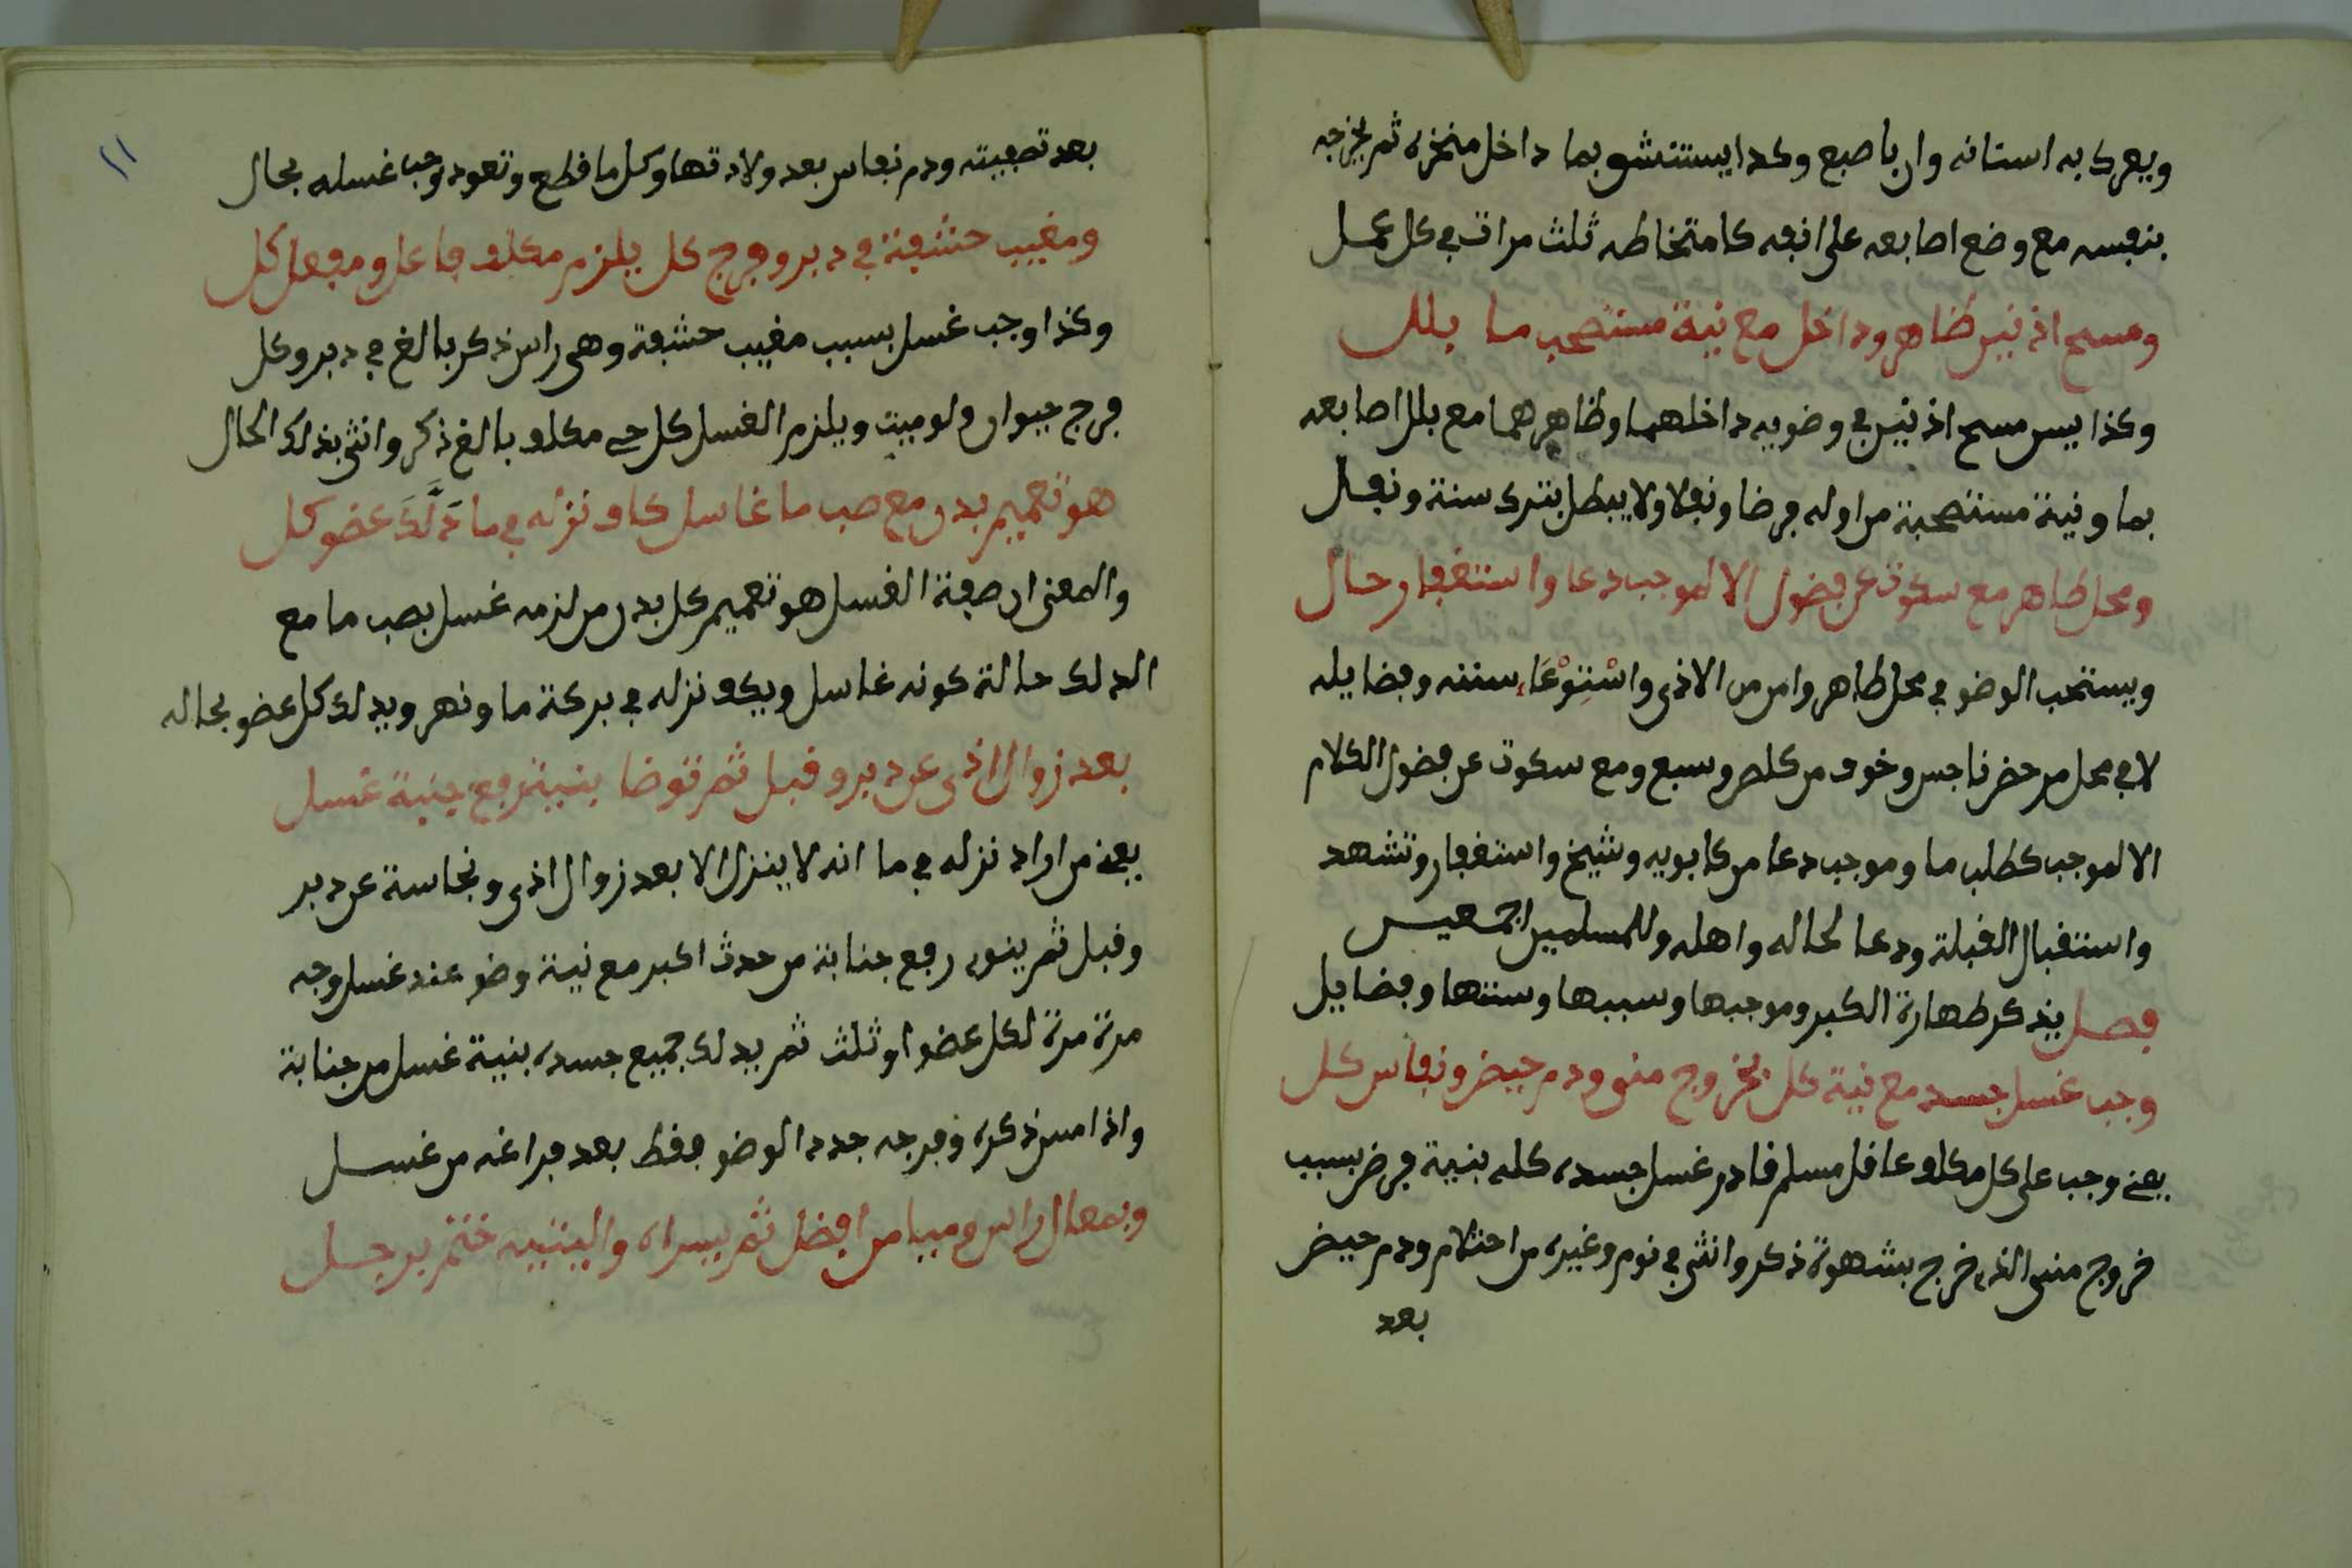 ويعرك به اسنانه وان باصبع وكذا يستنشق بما داخل منخره ثم يخرجه
بنفسه مع وضع اصابعه على انفه كامتخاطه ثلث مرات في كل عمل
ومسح اذنين ظاهر وداخل مع نية مستصحب ما بلل
وكذا يسن مسح اذنين في وضوييه داخلهما وظاهرهما مع بلل اصابعه
بما ونية مستصحبة من اوله فرضا ونفلا ولا يبطل بترك سنة ونفل
ومحل طاهر مع سكوت عن فضول الا لموجب دعا واستغفار حال
ويستحب الوضو في محل طاهر وامن من الاذى واسْتِوْعَاء سننه وفضايله
لا في محل مرحض ناجس وخوف من كلب وسبع ومع سكوت عن فضول الكلام
الا لموجب كطلب ما وموجب دعا من كابويه وشيخ واستغفار وتشهد
واستقبال القبلة ودعا لحاله واهله وللمسلمين اجمعين
فصل يذكر طهارة الكبر وموجبها وسببها وسننها وفضايل
وجب غسل جسد مع نية كل بخروج مني ودم حيض ونفاس كل
يعني وجب على كل مكلف عاقل مسلم قادر غسل جسده كله بنية فرض بسبب
خروج مني الذي خرج بشهوة ذكر وانثى في نوم وغيره من احتلام ودم حيض
بعد
١١
بعد تصفيته ودم نفاس بعد ولادتها وكل ما قطع وتعود وجب غسله بحال
ومغيب حشفة في دبر وفرج كل يلزم مكلف فاعل ومفعل كل
وكذا وجب غسل بسبب مغيب حشفة وهي راس ذكر بالغ في دبر وكل
فرج حيوان ولو ميت ويلزم الغسل كل حي مكلف بالغ ذكر وانثى بذلك الحال
هو تعميم بدن مع صب ما غاسل كاو نزله في ما دَلَّكَ عضو كل
والمعنى ان صفة الغسل هو تعميم كل بدن من لزمه غسل بصب ما مع
الدلك حالة كونه غاسل ويكف نزله في بركة ما ونهر ويدلك كل عضو بحاله
بعد زوال اذى عن دبر وقبل ثم توضا بنية رفع جنبة غسل
يعني من اراد نزله في ما انه لا ينزل الا بعد زوال اذى ونجاسة عن دبر
وقبل ثم ينوي رفع جنابة من حدث اكبر مع نية وضو عند غسل وجه
مرة مرة لكل عضو او ثلث ثم يدلك جميع جسده بنية غسل من جنابة
واذا مس ذكره وفرجه جدد الوضو فقط بعد فراغه من غسل
وبمعال راس وميامن افضل ثم يسراه واليتيه ختم برجل